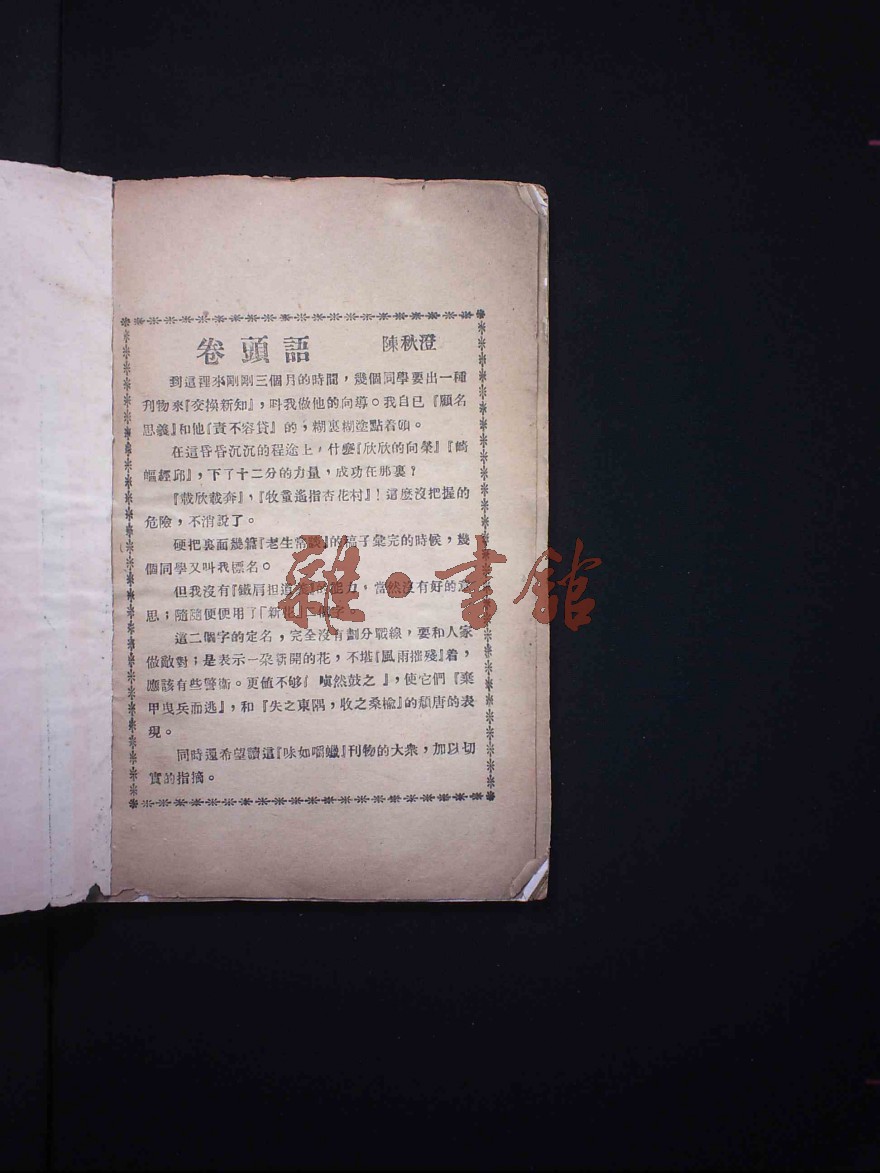 卷頭語　陳秋澄
到這裡來剛剛三個月的時間，幾個同學要出一種
刊物來『交換新知』，呌我做他的向導。我自已『顧名
思義』和他『責不容貸』的，糊裏糊塗點着頭。
在這昏昏沉沉的程途上，什麽『欣欣的向榮』『崎
嶇經邱』，下了十二分的力量，成功在那裏？
『載欣載奔』，『牧童遙指杏花村』！這麽沒把握的
危險，不消說了。
硬把裏面幾篇『老生常談』的稿子彙完的時候，幾
個同學又叫我標名。
但我沒有『鐵肩担道義』的能力，當然沒有好的意
思；隨隨便便用了『新花』二個字。
這二個字的定名，完全沒有劃分戰線，要和人家
做敵對；是表示一朶新開的花，不堪『風雨摧殘』着，
應該有些警衛。更值不够『填然鼓之』，使它們『棄
甲曳兵而逃』，和『失之東隅，收之桑榆』的頽唐的表
現。
同時還希望讀這『味如嚼蠟』刊物的大衆，加以切
實的指摘。
雜·書館